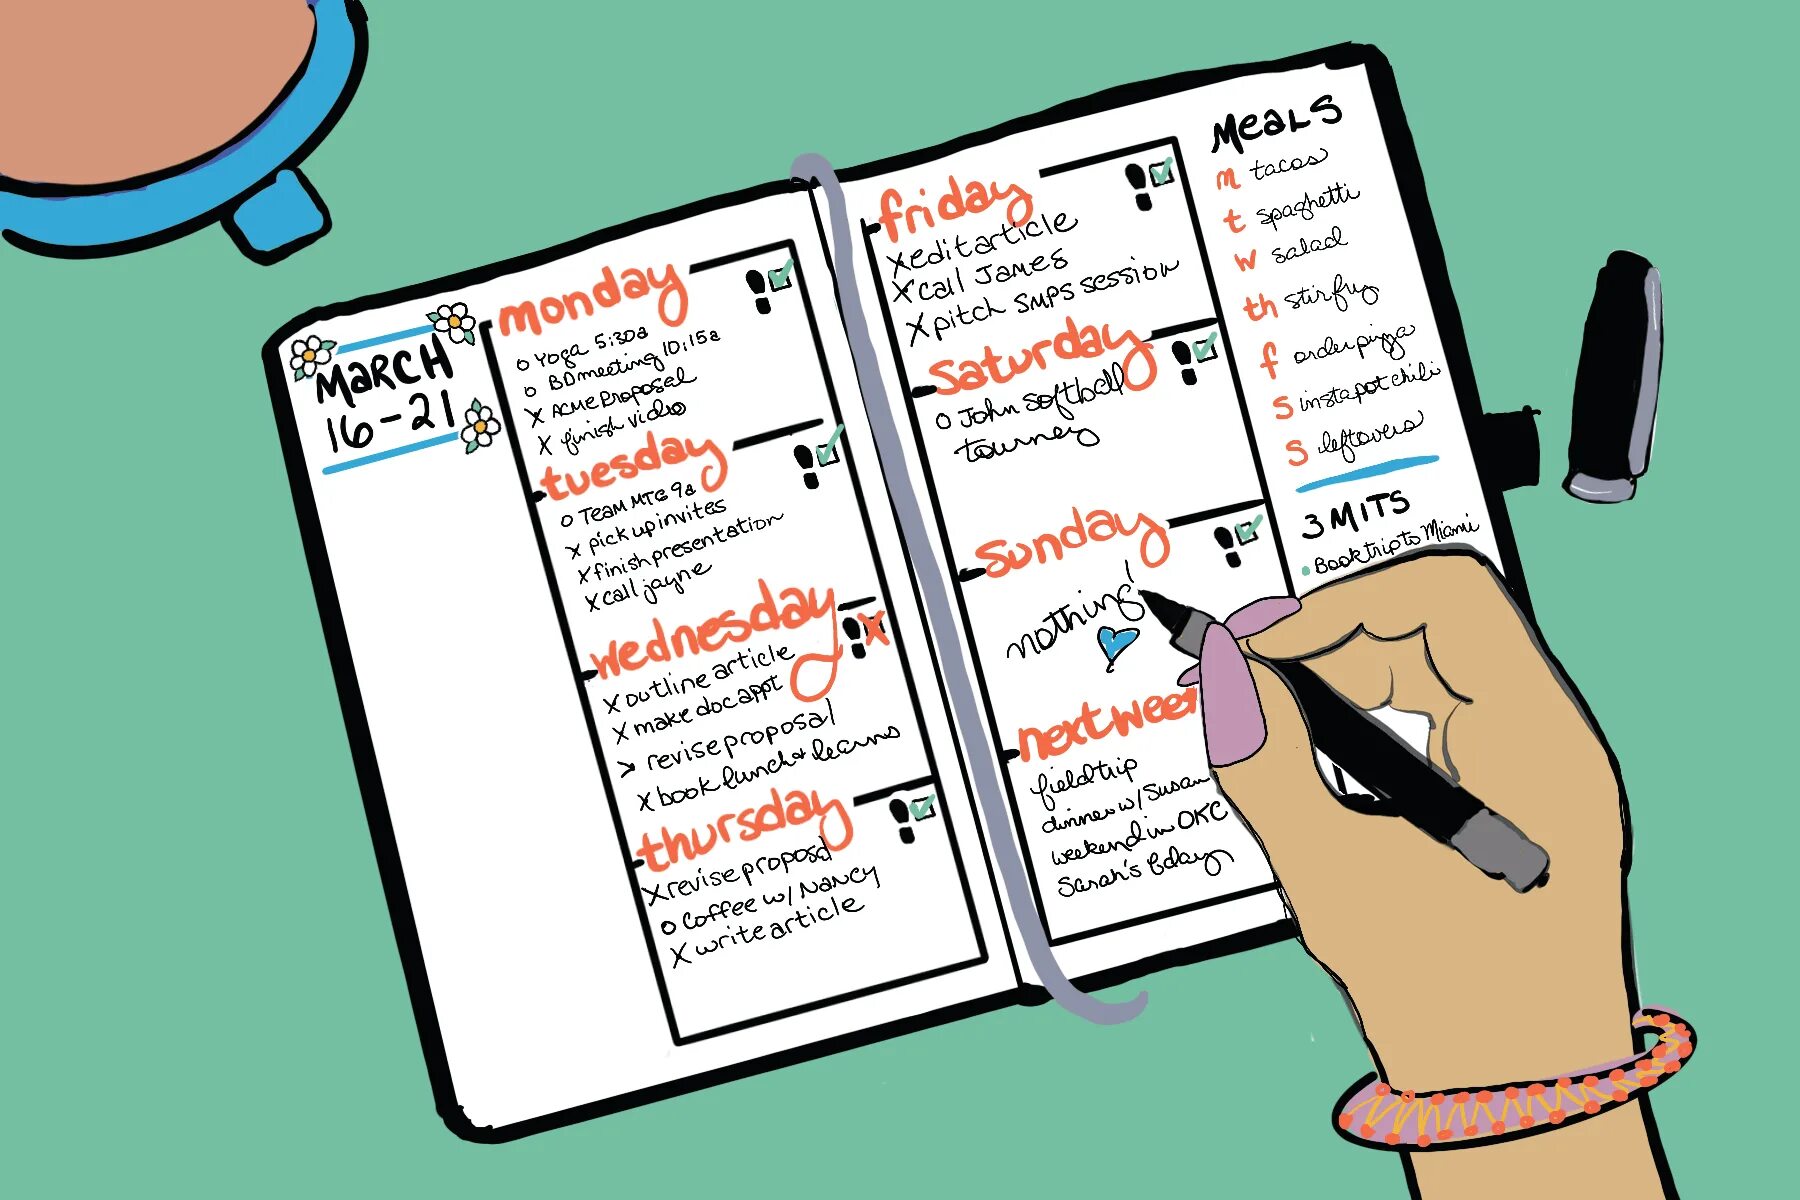 MARCH
16-21
monday
o Yoga 5:30a
o BD meeting 10:15a
x ACME Proposal
x finish video
tuesday
o Team MTG 9a
x pick up invites
x finish presentation
x call jayne
wednesday
x outline article
x make doc appt
> revise proposal
x book lunch & learns
thursday
x revise proposal
o Coffee w/ Nancy
x write article
friday
x edit article
x call James
x pitch SMPS session
saturday
o John softball
tourney
sunday
nothing!
next week
field trip
dinner w/ Susan
weekend in OKC
Sarah's bday
MEALS
m tacos
t spaghetti
w salad
th stir fry
f order pizza
s instapot chili
s leftovers
3 MITS
• Book trip to Miami